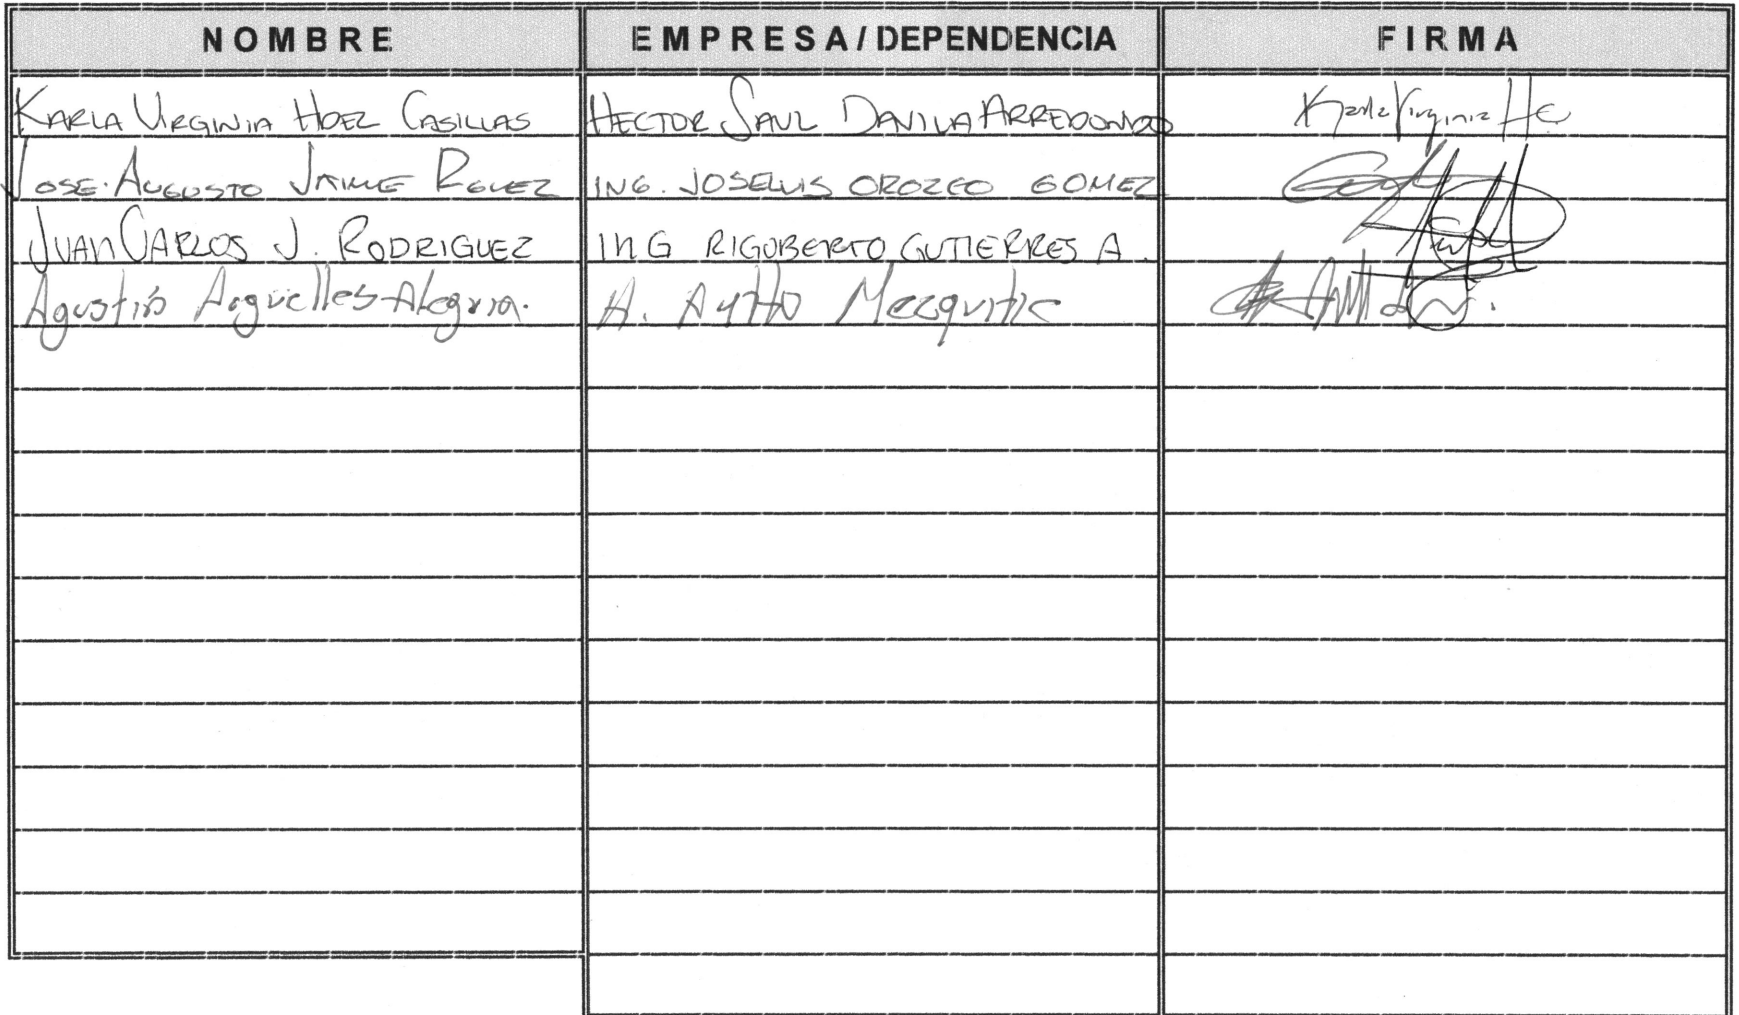 NOMBRE EMPRESA/DEPENDENCIA FIRMA
KARLA VIRGINIA HDEZ CASILLAS HECTOR SAUL DAVILA ARREDONDO Karla Virginia H C
JOSE. AUGUSTO JAIME RGUEZ ING. JOSE LUIS OROZCO GOMEZ
JUAN CARLOS J. RODRIGUEZ ING RIGOBERTO GUTIERRES A.
Agustín Argüelles Alegria. H. Aytto Mezquitic